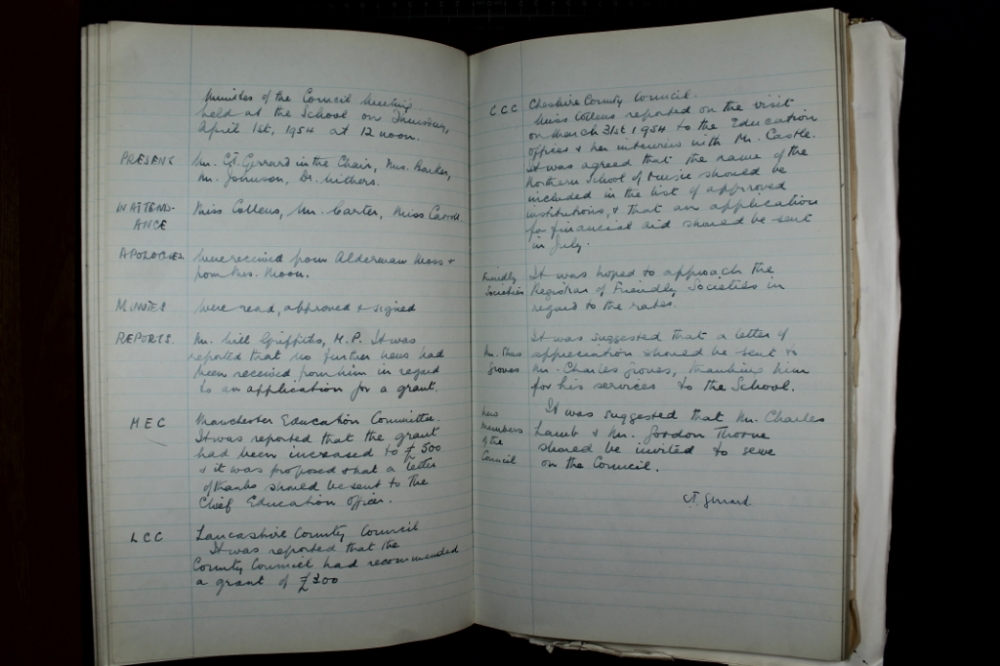 Minutes of the Council Meeting
held at the School on Thursday,
April 1st, 1954 at 12 noon.
PRESENT Mr. C.T. Gerrard in the Chair, Mrs. Barker,
Mr. Johnson, Dr. Withers.
IN ATTEND- Miss Collens, Mr. Carter, Miss Carroll
ANCE
APOLOGIES were received from Alderman Moss +
from Mrs. Moon.
MINUTES were read, approved + signed
REPORTS. Mr. Will Griffiths, M.P. It was
reported that no further news had
been received from him in regard
to an application for a grant.
MEC Manchester Education Committee.
It was reported that the grant
had been increased to £500
+ it was proposed that a letter
of thanks should be sent to the
Chief Education Officer.
LCC Lancashire County Council
It was reported that the
County Council had recommended
a grant of £300
CCC Cheshire County Council.
Miss Collens reported on the visit
on March 31st 1954 to the Education
Offices + her interview with Mr. Castle.
It was agreed that the name of the
Northern School of Music should be
included in the list of approved
institutions, + that an application
for financial aid should be sent
in July.
Friendly It was hoped to approach the
Societies Registrar of Friendly Societies in
regard to the rates.
It was suggested that a letter of
Mr. Chas appreciation should be sent to
Groves Mr. Charles Groves, thanking him
for his services to the School.
New It was suggested that Mr. Charles
Members Lamb + Mr. Gordon Thorne
of the should be invited to serve
Council on the Council.
C.T. Gerrard